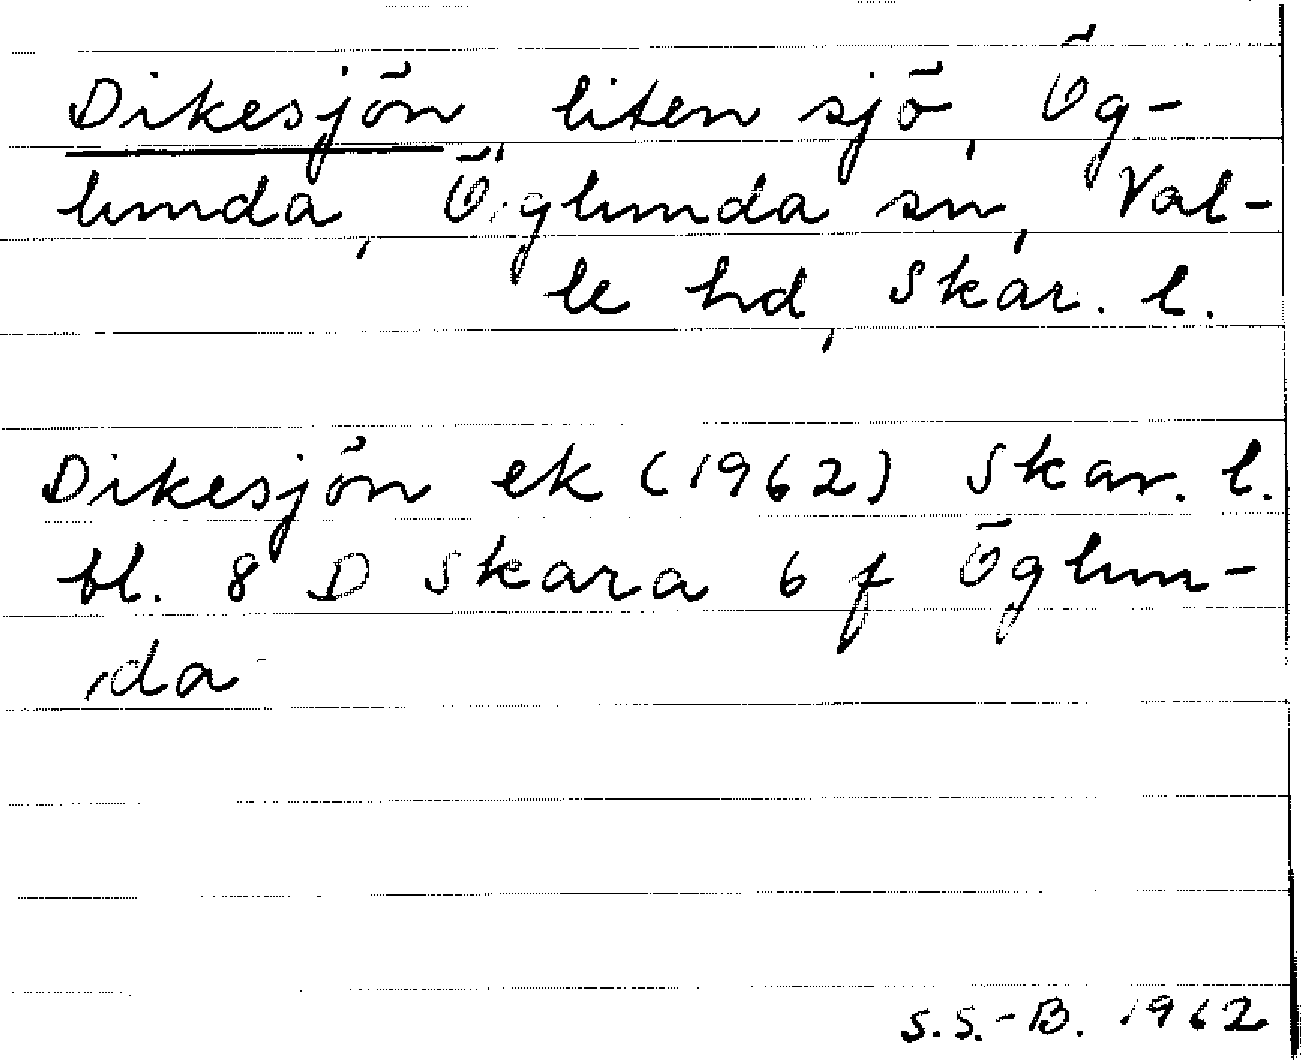 Dikesjön, liten sjö, Ög-
lunda, Öglunda sn, Val-
le hd, Skar. l.
Dikesjön ek (1962) Skar. l.
bl. 8 D Skara 6 f Öglun-
da
S.S.-B. 1962